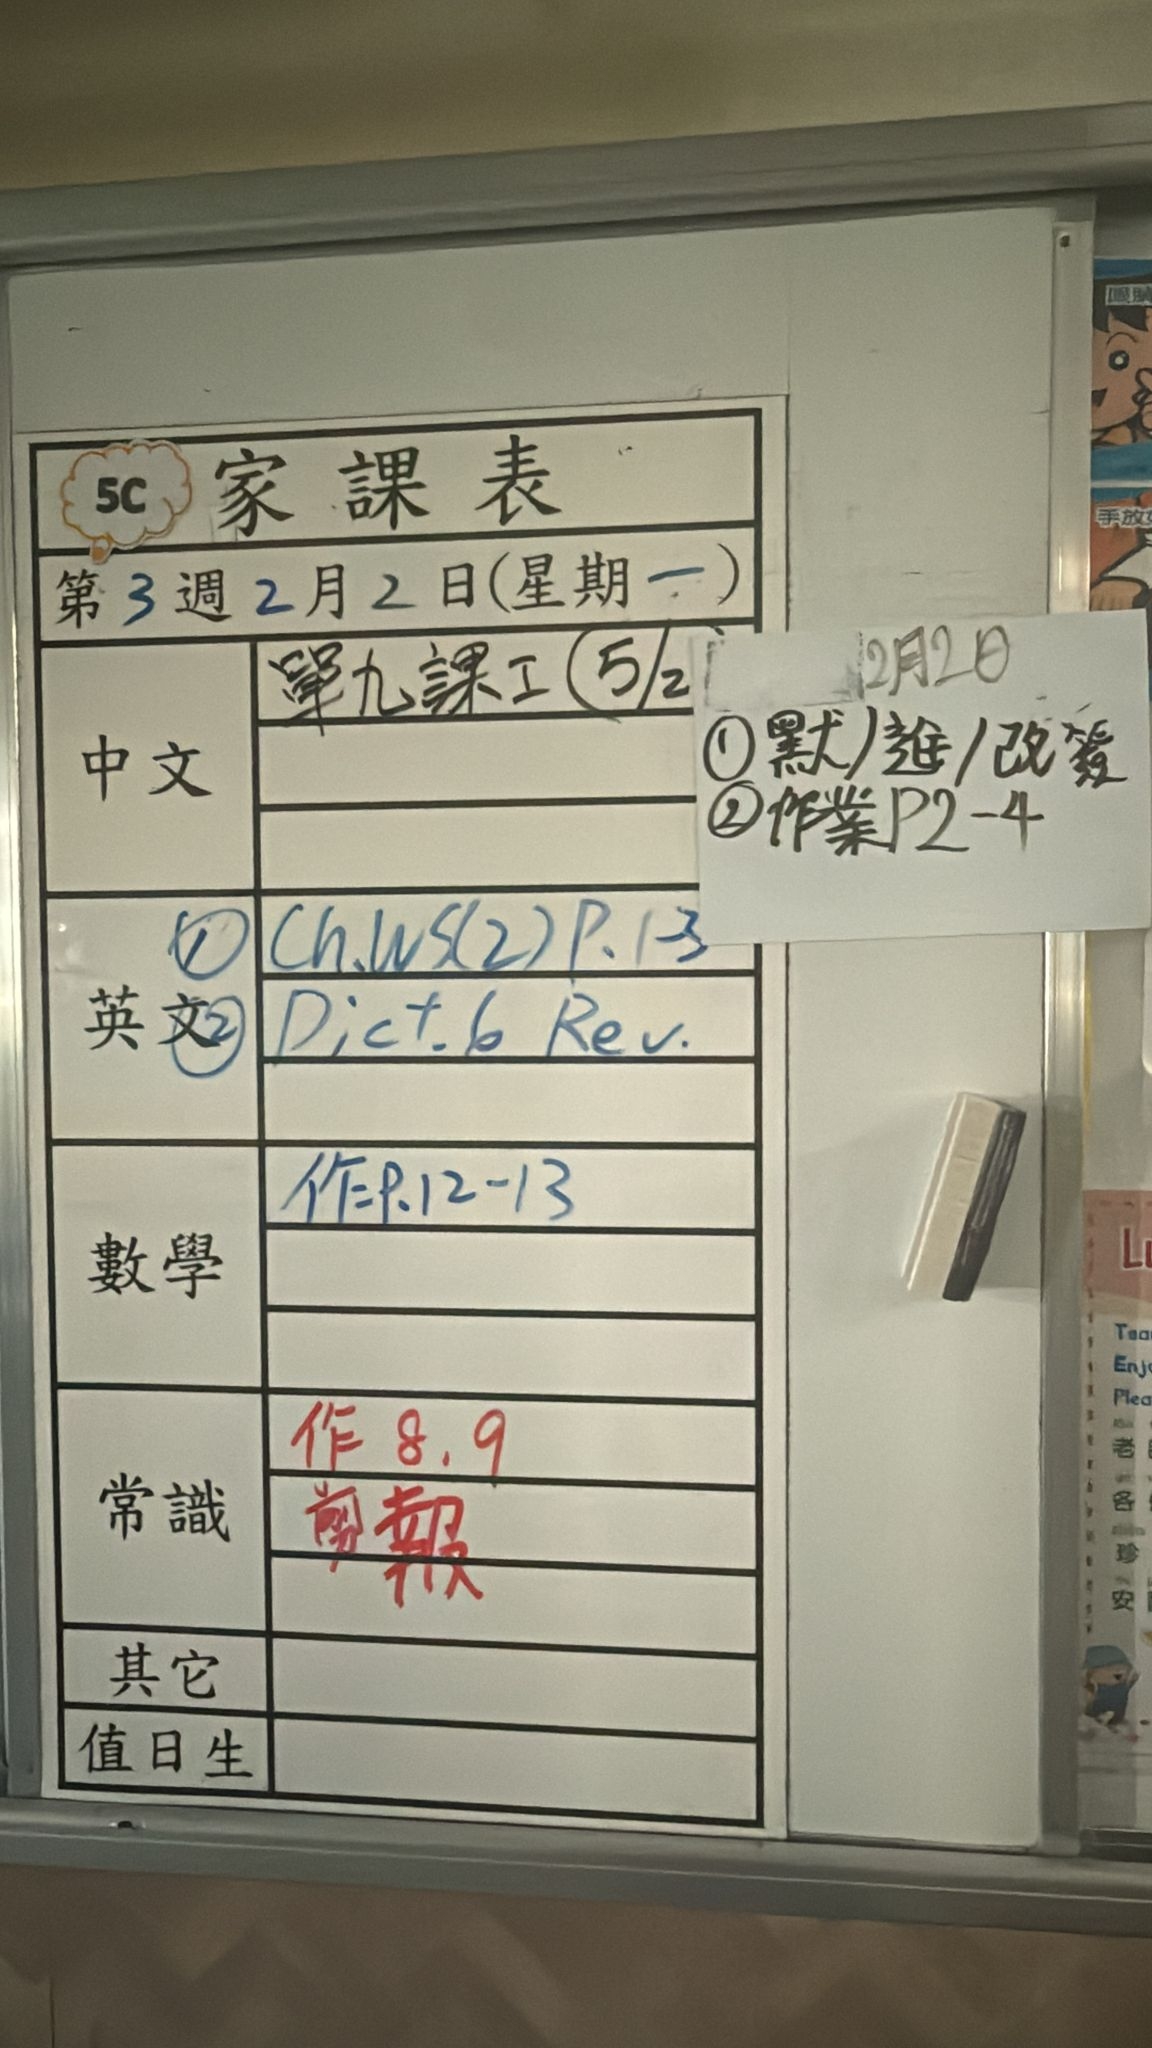 5C 家課表
第3週2月2日(星期一)
中文
單九課工(5/2
2月2日
①默/進/改簽
②作業P2-4
英文
① Ch.WS(2) P.1-3
② Dict.6 Rev.
數學
作P.12-13
常識
作 8.9
剪報
其它
值日生
手放
Enj
Plea
老
各
珍
安